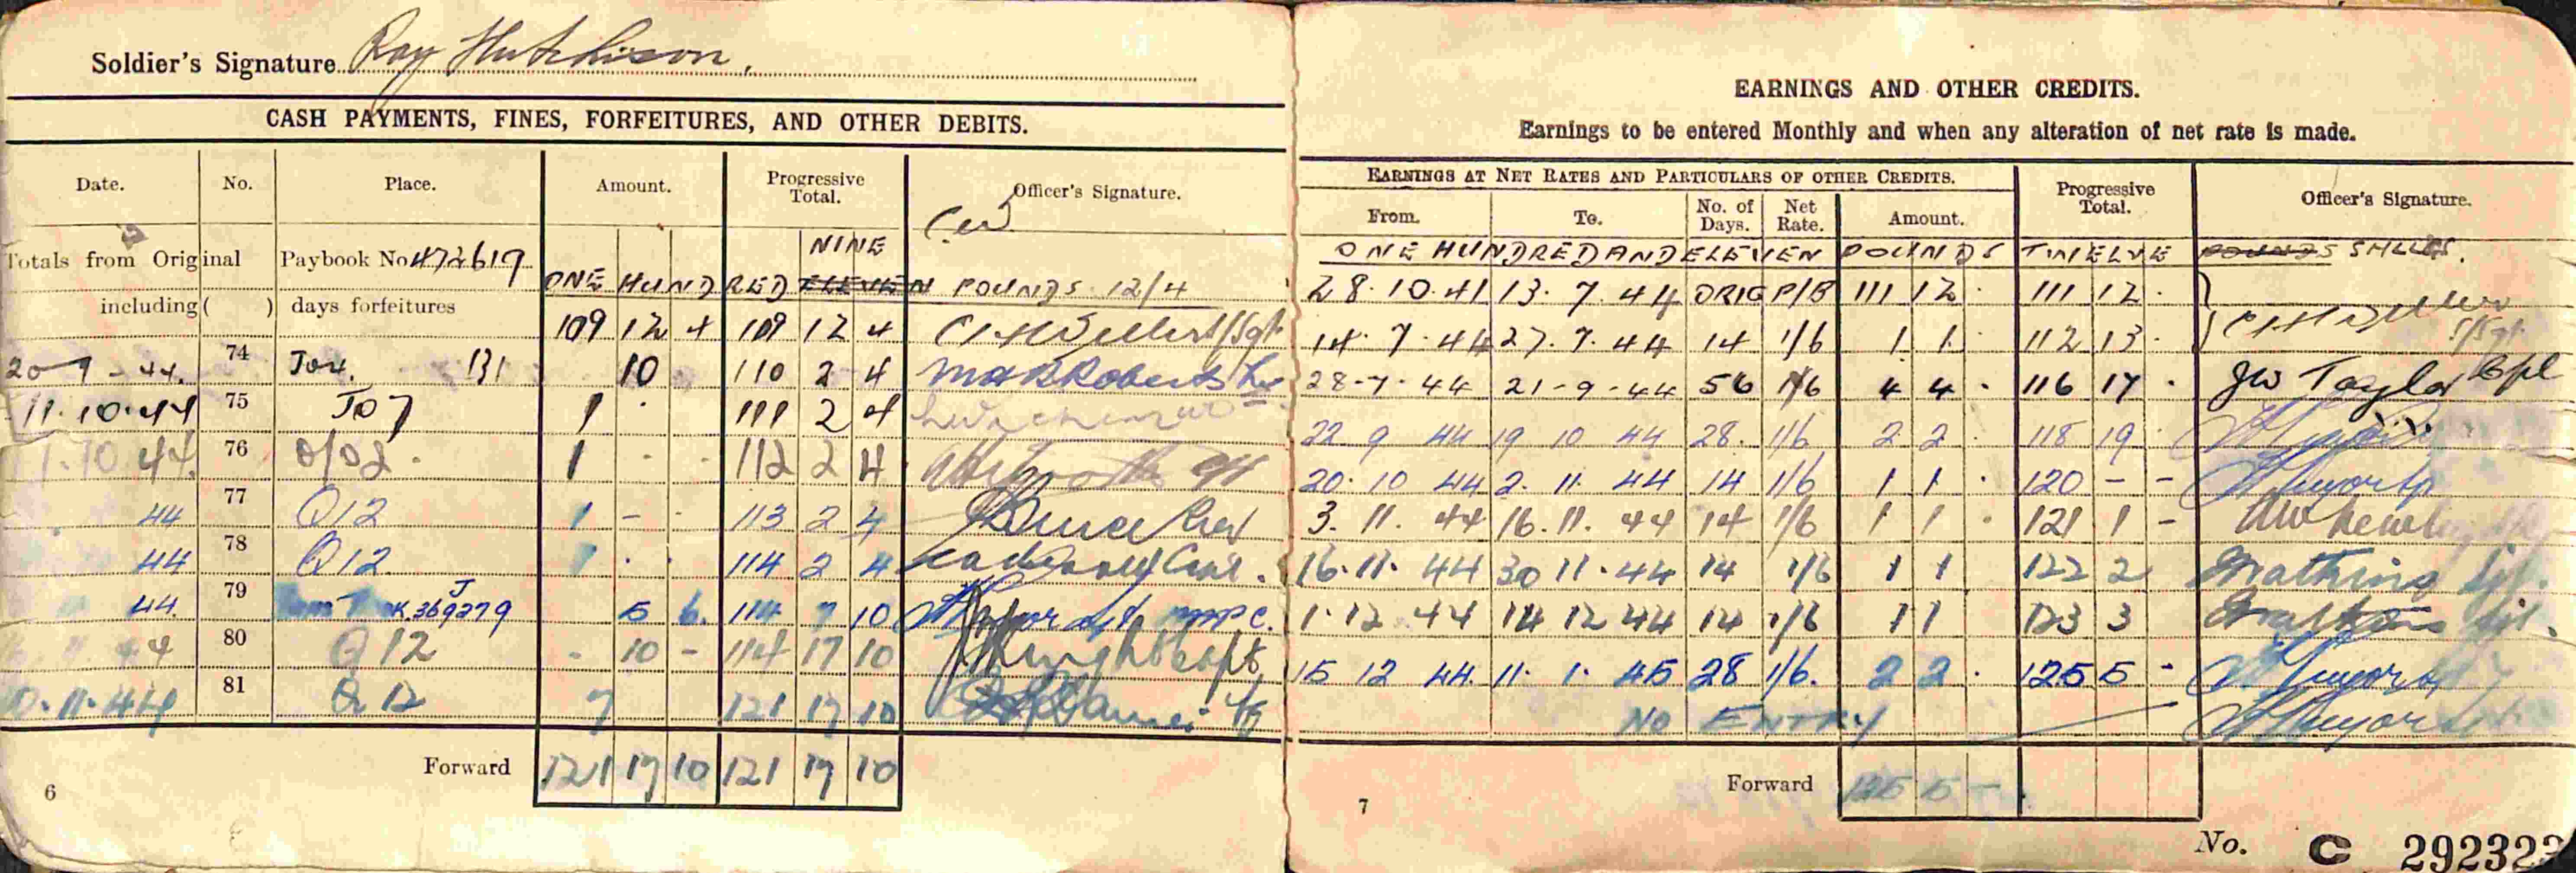 Soldier's Signature Ray Hutchison.
CASH PAYMENTS, FINES, FORFEITURES, AND OTHER DEBITS.
Date. No. Place. Amount. Progressive Total. Officer's Signature.
Totals from Original Paybook No 472619 NINE
including ( ) days forfeitures ONE HUNDRED ELEVEN POUNDS 12/4
109 12 4 109 12 4
74 10 110 2 4
11.10.44 75 J07 1 . 111 2 4
10.44. 76 1 - - 112 2 4
44 77 Q12 1 - - 113 2 4
44 78 Q12 1 . . 114 2 4
44. 79 K.369279 J 5 6. 114 7 10
44 80 Q12 - 10 - 114 17 10
10.11.44 81 Q12 7 121 17 10
Forward 121 17 10 121 17 10
6
EARNINGS AND OTHER CREDITS.
Earnings to be entered Monthly and when any alteration of net rate is made.
EARNINGS AT NET RATES AND PARTICULARS OF OTHER CREDITS. Progressive Total. Officer's Signature.
From. To. No. of Days. Net Rate. Amount.
ONE HUNDRED AND ELEVEN POUNDS TWELVE POUNDS
28.10.41 13.7.44 ORIG P/B 111 12 . 111 12 .
14.7.44 27.7.44 14 1/6 1 1 . 112 13 . S/Sgt
28-7-44 21-9-44 56 1/6 4 4 . 116 17 . JW Taylor Cpl
22 9 44 19 10 44 28. 1/6 2 2 . 118 19 .
20.10 44 2. 11. 44 14 1/6 1 1 . 120 - -
3. 11. 44 16.11. 44 14 1/6 1 1 . 121 1 -
16.11. 44 30 11.44 14 1/6 1 1 122 2
1.12 44 14 12 44 14 1/6 1 1 123 3
15 12 44. 11. 1. 45 28 1/6. 2 2 . 125 5 -
NO ENTRY
Forward 125 5 -
7
No. C 292323